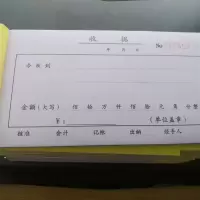 收据
年 月 日 No
今收到
金额(大写) 佰 拾 万 仟 佰 拾 元 角 分整
¥: (单位盖章)
核准 会计 记账 出纳 经手人